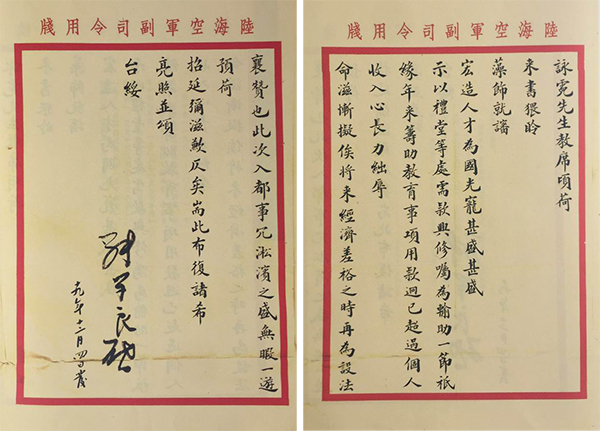 陸海空軍副司令用牋
詠霓先生教席頃荷
來書猥
藻飾就
宏造人才為國光寵甚盛甚盛
示以禮堂等處需款興修囑為輸助一節祇
緣年來籌助教育事項用款迥已超過個人
收入心長力絀辱
命滋慚擬俟將來經濟差裕之時再為設法
陸海空軍副司令用牋
襄贊也此次入都事冗淞濱之盛無暇一遊
預荷
招延彌滋歉仄矣耑此布復諸希
亮照並頌
台綏
張學良啟
十九年十二月四日發